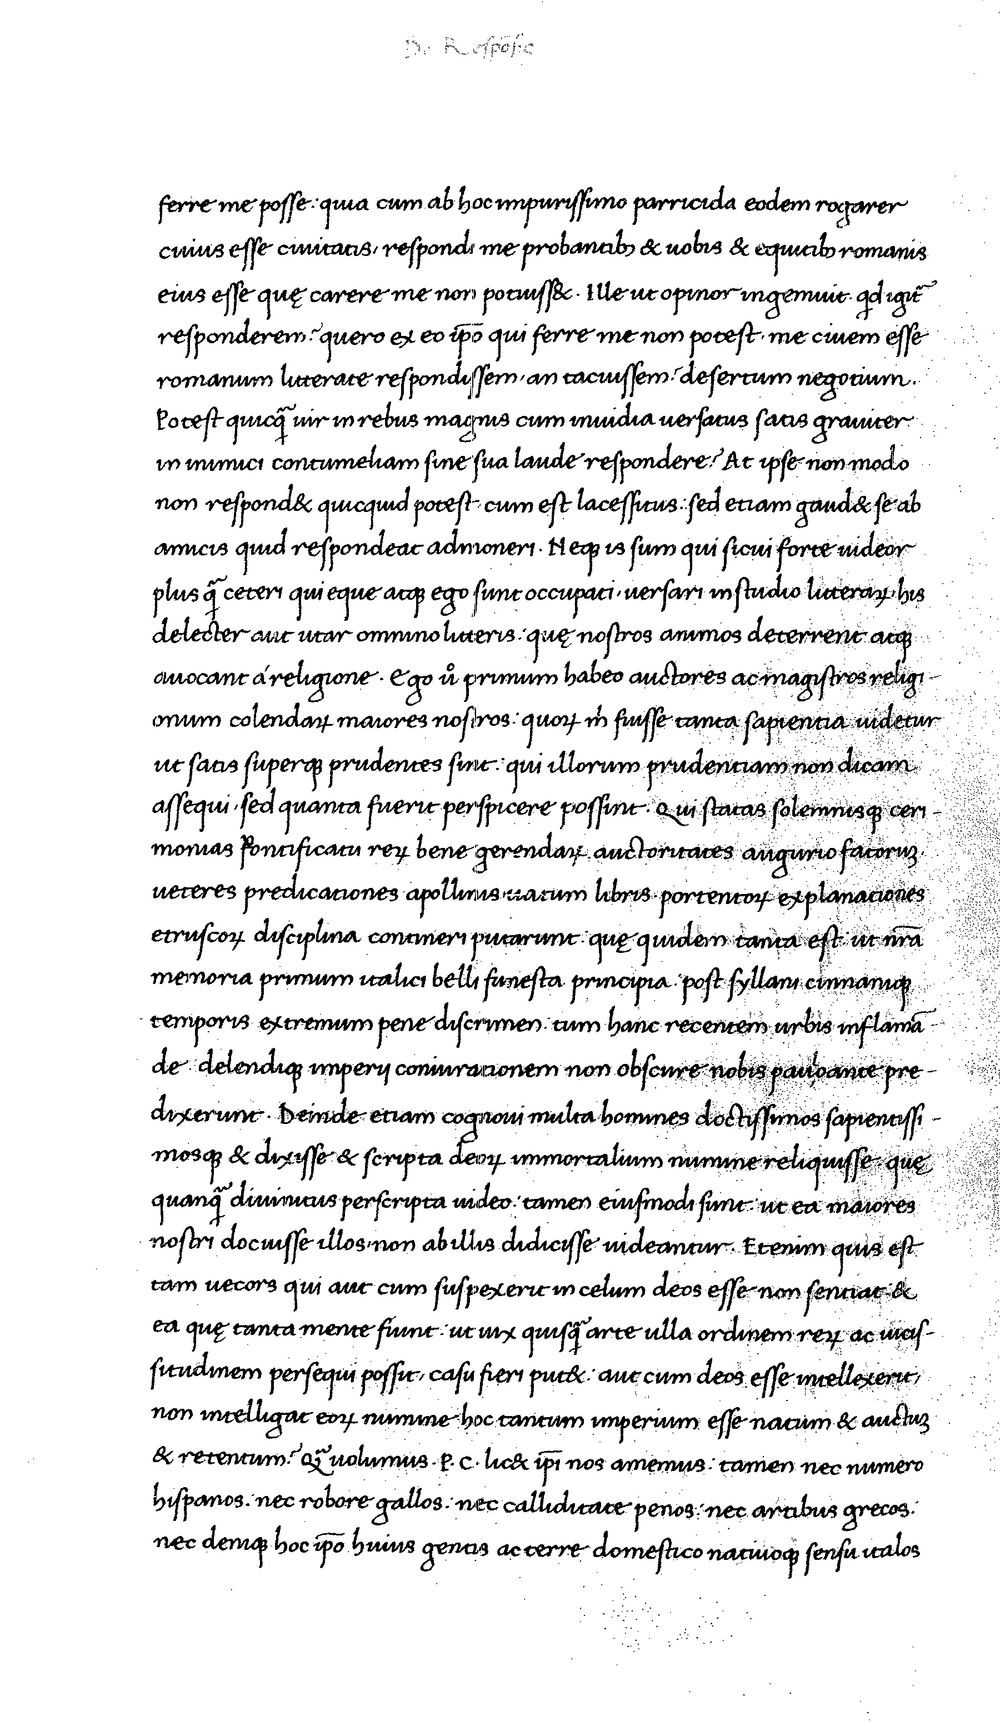 De Respōsis
ferre me posse: quia cum ab hoc impurissimo parricida eodem rogarer
cuius esse ciuitatis, respondi me probantibꝫ & uobis & equitibꝫ romanis
eius esse quę carere me non potuiss&. Ille ut opinor ingemuit. qd igit̃
responderem? quero ex eo ip̄o qui ferre me non potest. me ciuem esse
romanum litterate respondissem, an tacuissem? desertum negotium.
Potest quicq̃ uir in rebus magnis cum inuidia uersatus satis grauiter
in inimici contumeliam sine sua laude respondere? At ipse non modo
non respond& quicquid potest. cum est lacessitus: sed etiam gaud& se ab
amicis quid respondeat admoneri. Neqꝫ is sum qui sicui forte uideor
plus q̃ ceteri qui eque atqꝫ ego sunt occupati, uersari in studio litteraꝝ. his
delecter aut utar omnino litteris: quę nostros animos deterrent atqꝫ
auocant á religione. Ego ů primum habeo auctores ac magistros religi-
onum colendaꝝ maiores nostros: quoꝝ m̍ fuisse tanta sapientia uidetur
ut satis superqꝫ prudentes sint: qui illorum prudentiam non dicam
assequi, sed quanta fuerit perspicere possint. Qui statas solemnisqꝫ ceri-
monias Pontificatu reꝝ bene gerendaꝝ auctoritates augurio fatoruꝫ.
ueteres predicationes apollinis uatum libris. portentoꝝ explanationes
etruscoꝝ disciplina contineri putarunt: quę quidem tanta est: ut nr̄a
memoria primum italici belli funesta principia. post syllani cinnaniqꝫ
temporis extremum pene discrimen: tum hanc recentem urbis inflamā-
de delendiqꝫ imperij coniurationem non obscure nobis paulo ante pre-
dixerunt. Deinde etiam cognoui multa homines doctissimos sapientissi-
mosqꝫ & dixisse & scripta deoꝝ immortalium numine reliquisse. quę
quanq̃ diuinitus perscripta uideo: tamen eiusmodi sunt: ut ea maiores
nostri docuisse illos, non ab illis didicisse uideantur. Etenim quis est
tam uecors qui aut cum suspexerit in celum deos esse non sentiat: &
ea quę tanta mente fiunt: ut uix quisq̃ arte ulla ordinem reꝝ ac uicis-
situdinem persequi possit, casu fieri put&: aut cum deos esse intellexerit,
non intelligat eoꝝ numine hoc tantum imperium esse natum & auctuꝫ
& retentum? Q̃ uolumus. P. C. lic& ip̄i nos amemus: tamen nec numero
hispanos: nec robore gallos: nec calliditate penos: nec artibus grecos:
nec deniqꝫ hoc ip̄o huius gentis ac terre domestico natiuoqꝫ sensu italos